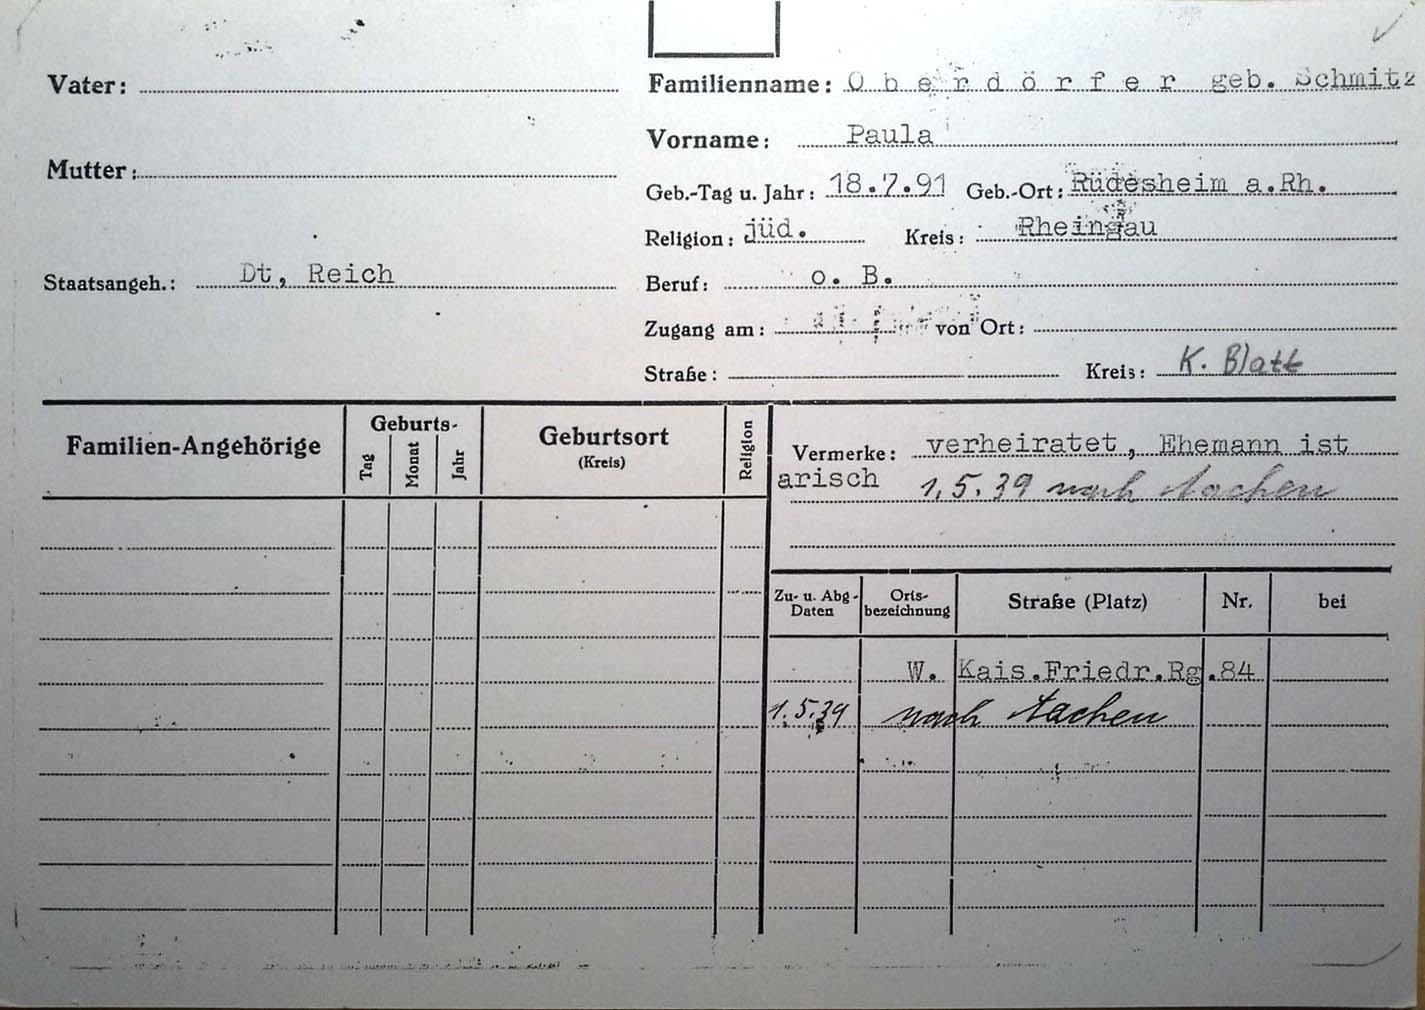 Vater:
Mutter:
Staatsangeh.: Dt, Reich
Familienname: O b e r d ö r f e r geb. Schmitz
Vorname: Paula
Geb.-Tag u. Jahr: 18.7.91 Geb.-Ort: Rüdesheim a.Rh.
Religion: jüd. Kreis: Rheingau
Beruf: o. B.
Zugang am: von Ort:
Straße: Kreis: K. Blatt
Familien-Angehörige
Geburts-
Tag
Monat
Jahr
Geburtsort
(Kreis)
Religion
Vermerke: verheiratet, Ehemann ist
arisch 1.5.39 nach Aachen
Zu- u. Abg-
Daten
Orts-
bezeichnung
Straße (Platz)
Nr.
bei
W. Kais.Friedr.Rg.84
1.5.39 nach Aachen